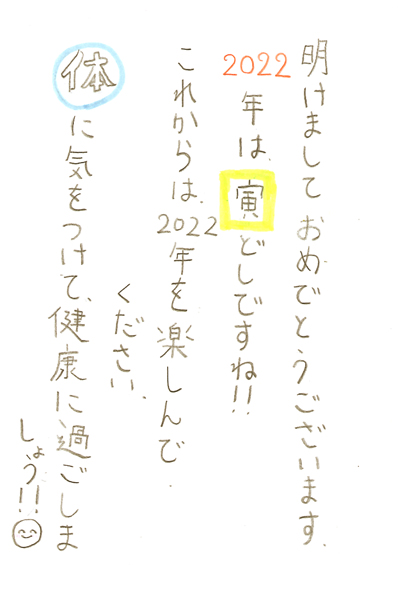 明けまして おめでとうございます.
2022年は、寅どしですね!!
これからは、2022年を楽しんで
ください、
体に気をつけて、健康に過ごしま
しょう!!